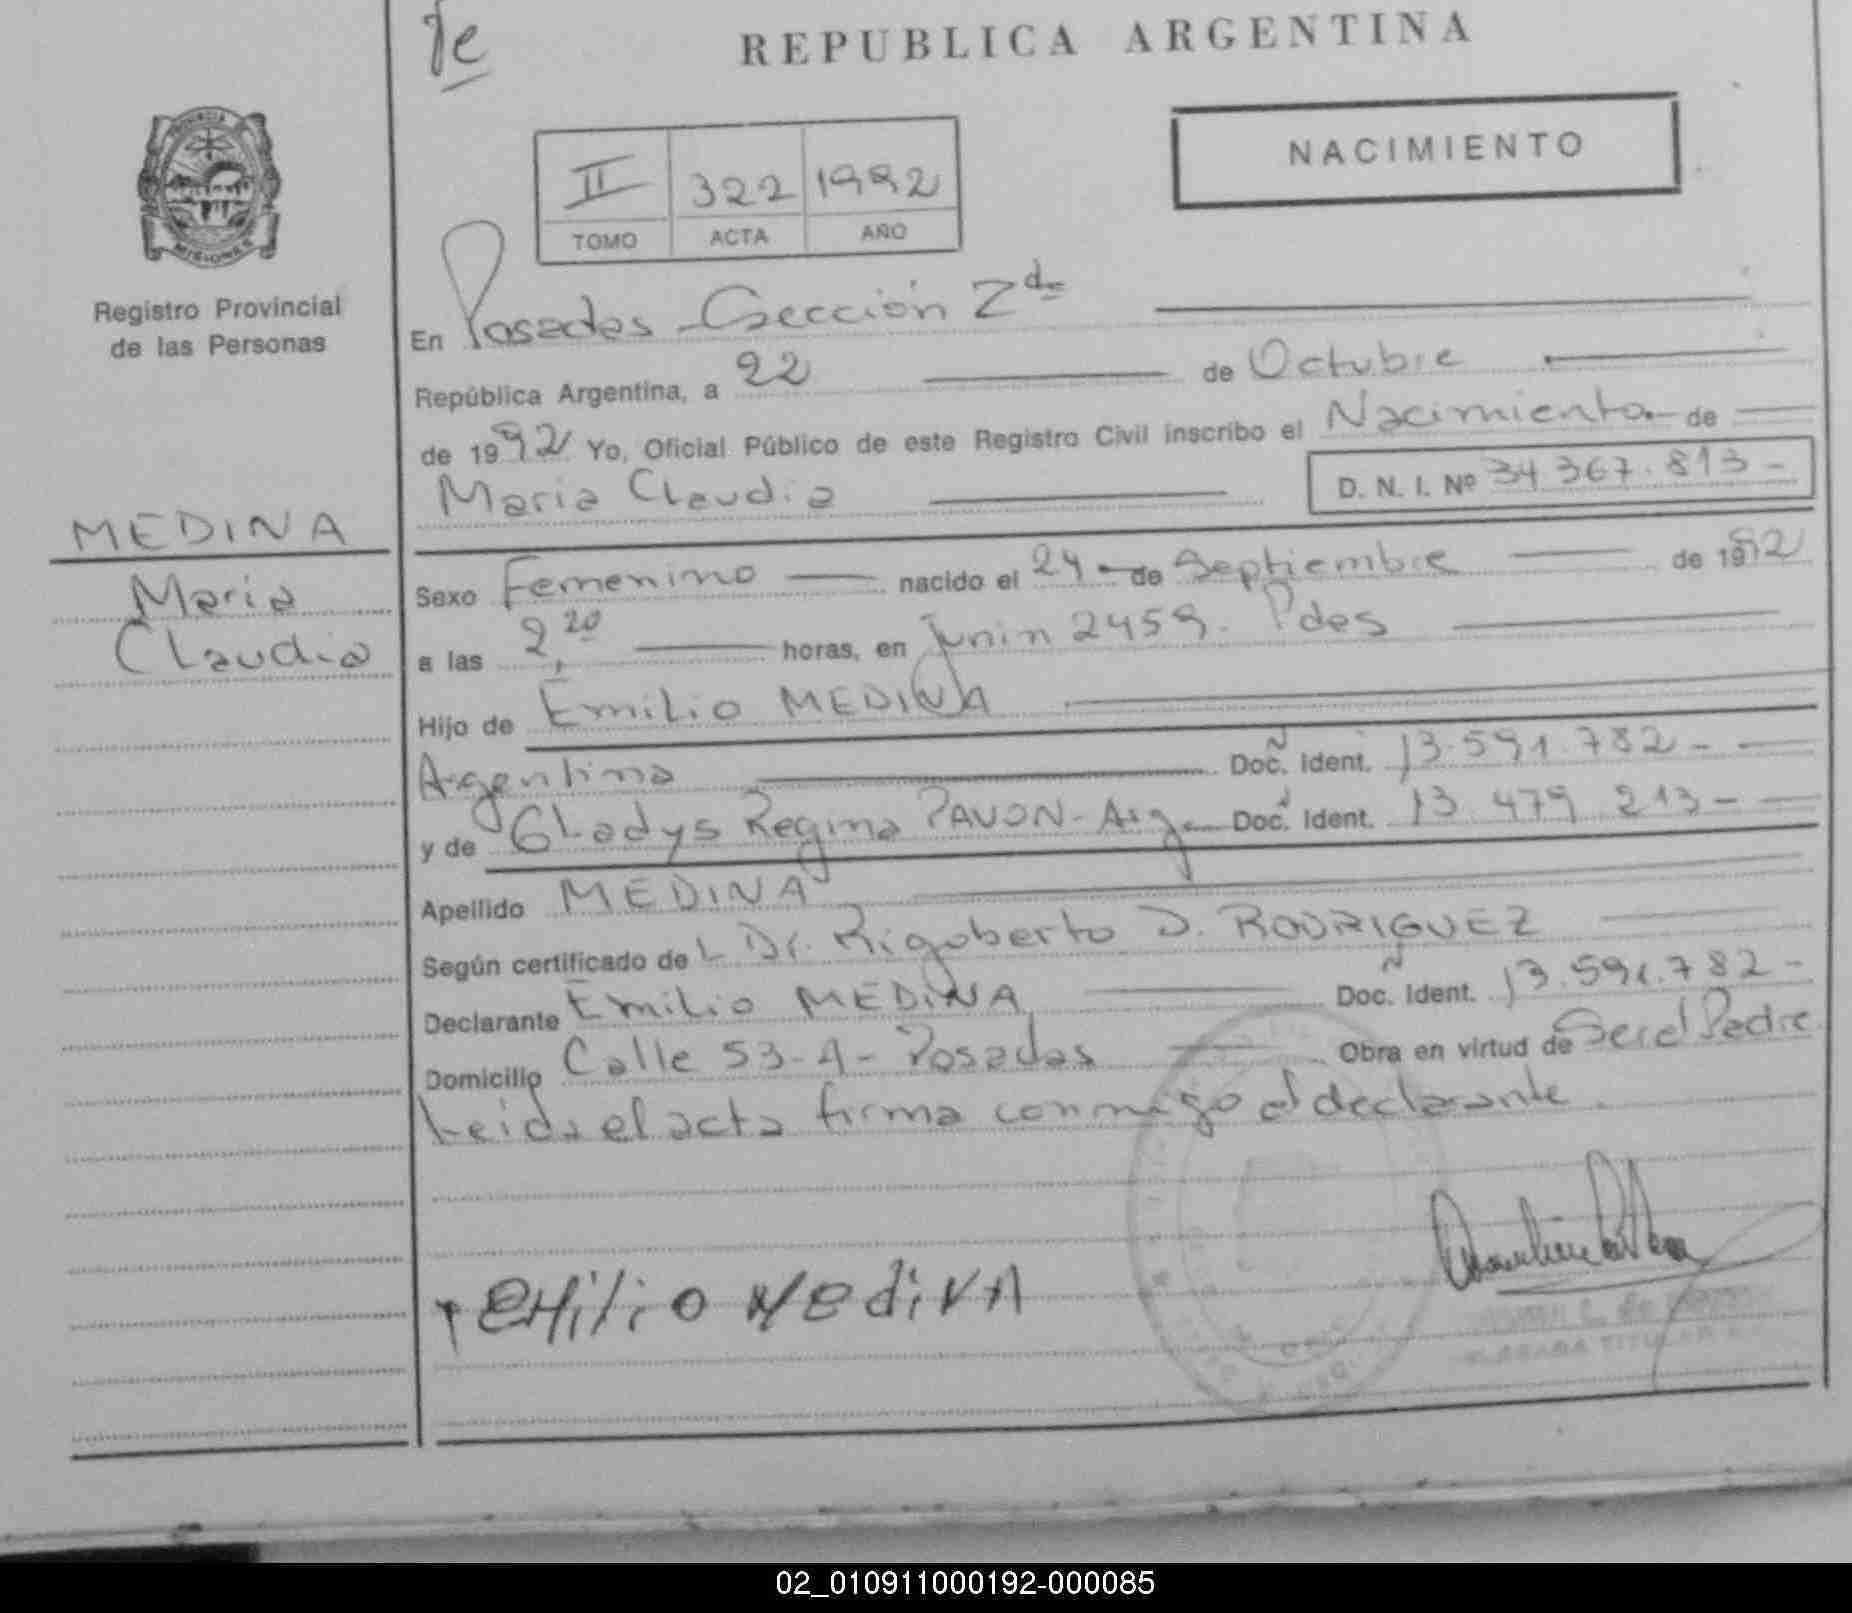 REPUBLICA ARGENTINA
NACIMIENTO
II 322 1992
TOMO ACTA AÑO
PROVINCIA
MISIONES
Registro Provincial
de las Personas
MEDINA
Maria
Claudia
En Posadas Sección 2da
República Argentina, a 22 de Octubre
de 1992 Yo, Oficial Público de este Registro Civil inscribo el Nacimiento. de
Maria Claudia D. N. I. Nº 34 367.813 -
Sexo Femenino nacido el 24 - de Septiembre de 1992
a las 2,20 horas, en Junin 2459. Pdas
Hijo de Emilio MEDINA
Argentina Doc. Ident. 13.591.782 -
y de Gladys Regina PAVON - Arg. Doc. Ident. 13 479 213 -
Apellido MEDINA
Según certificado del Dr. Rigoberto D. RODRIGUEZ
Declarante Emilio MEDINA Doc. Ident. 13.591.782 -
Domicilio Calle 53 - A - Posadas Obra en virtud de Ser el Padre
Leida el acta firma conmigo el declarante.
EMiliO MediNA
02_010911000192-000085